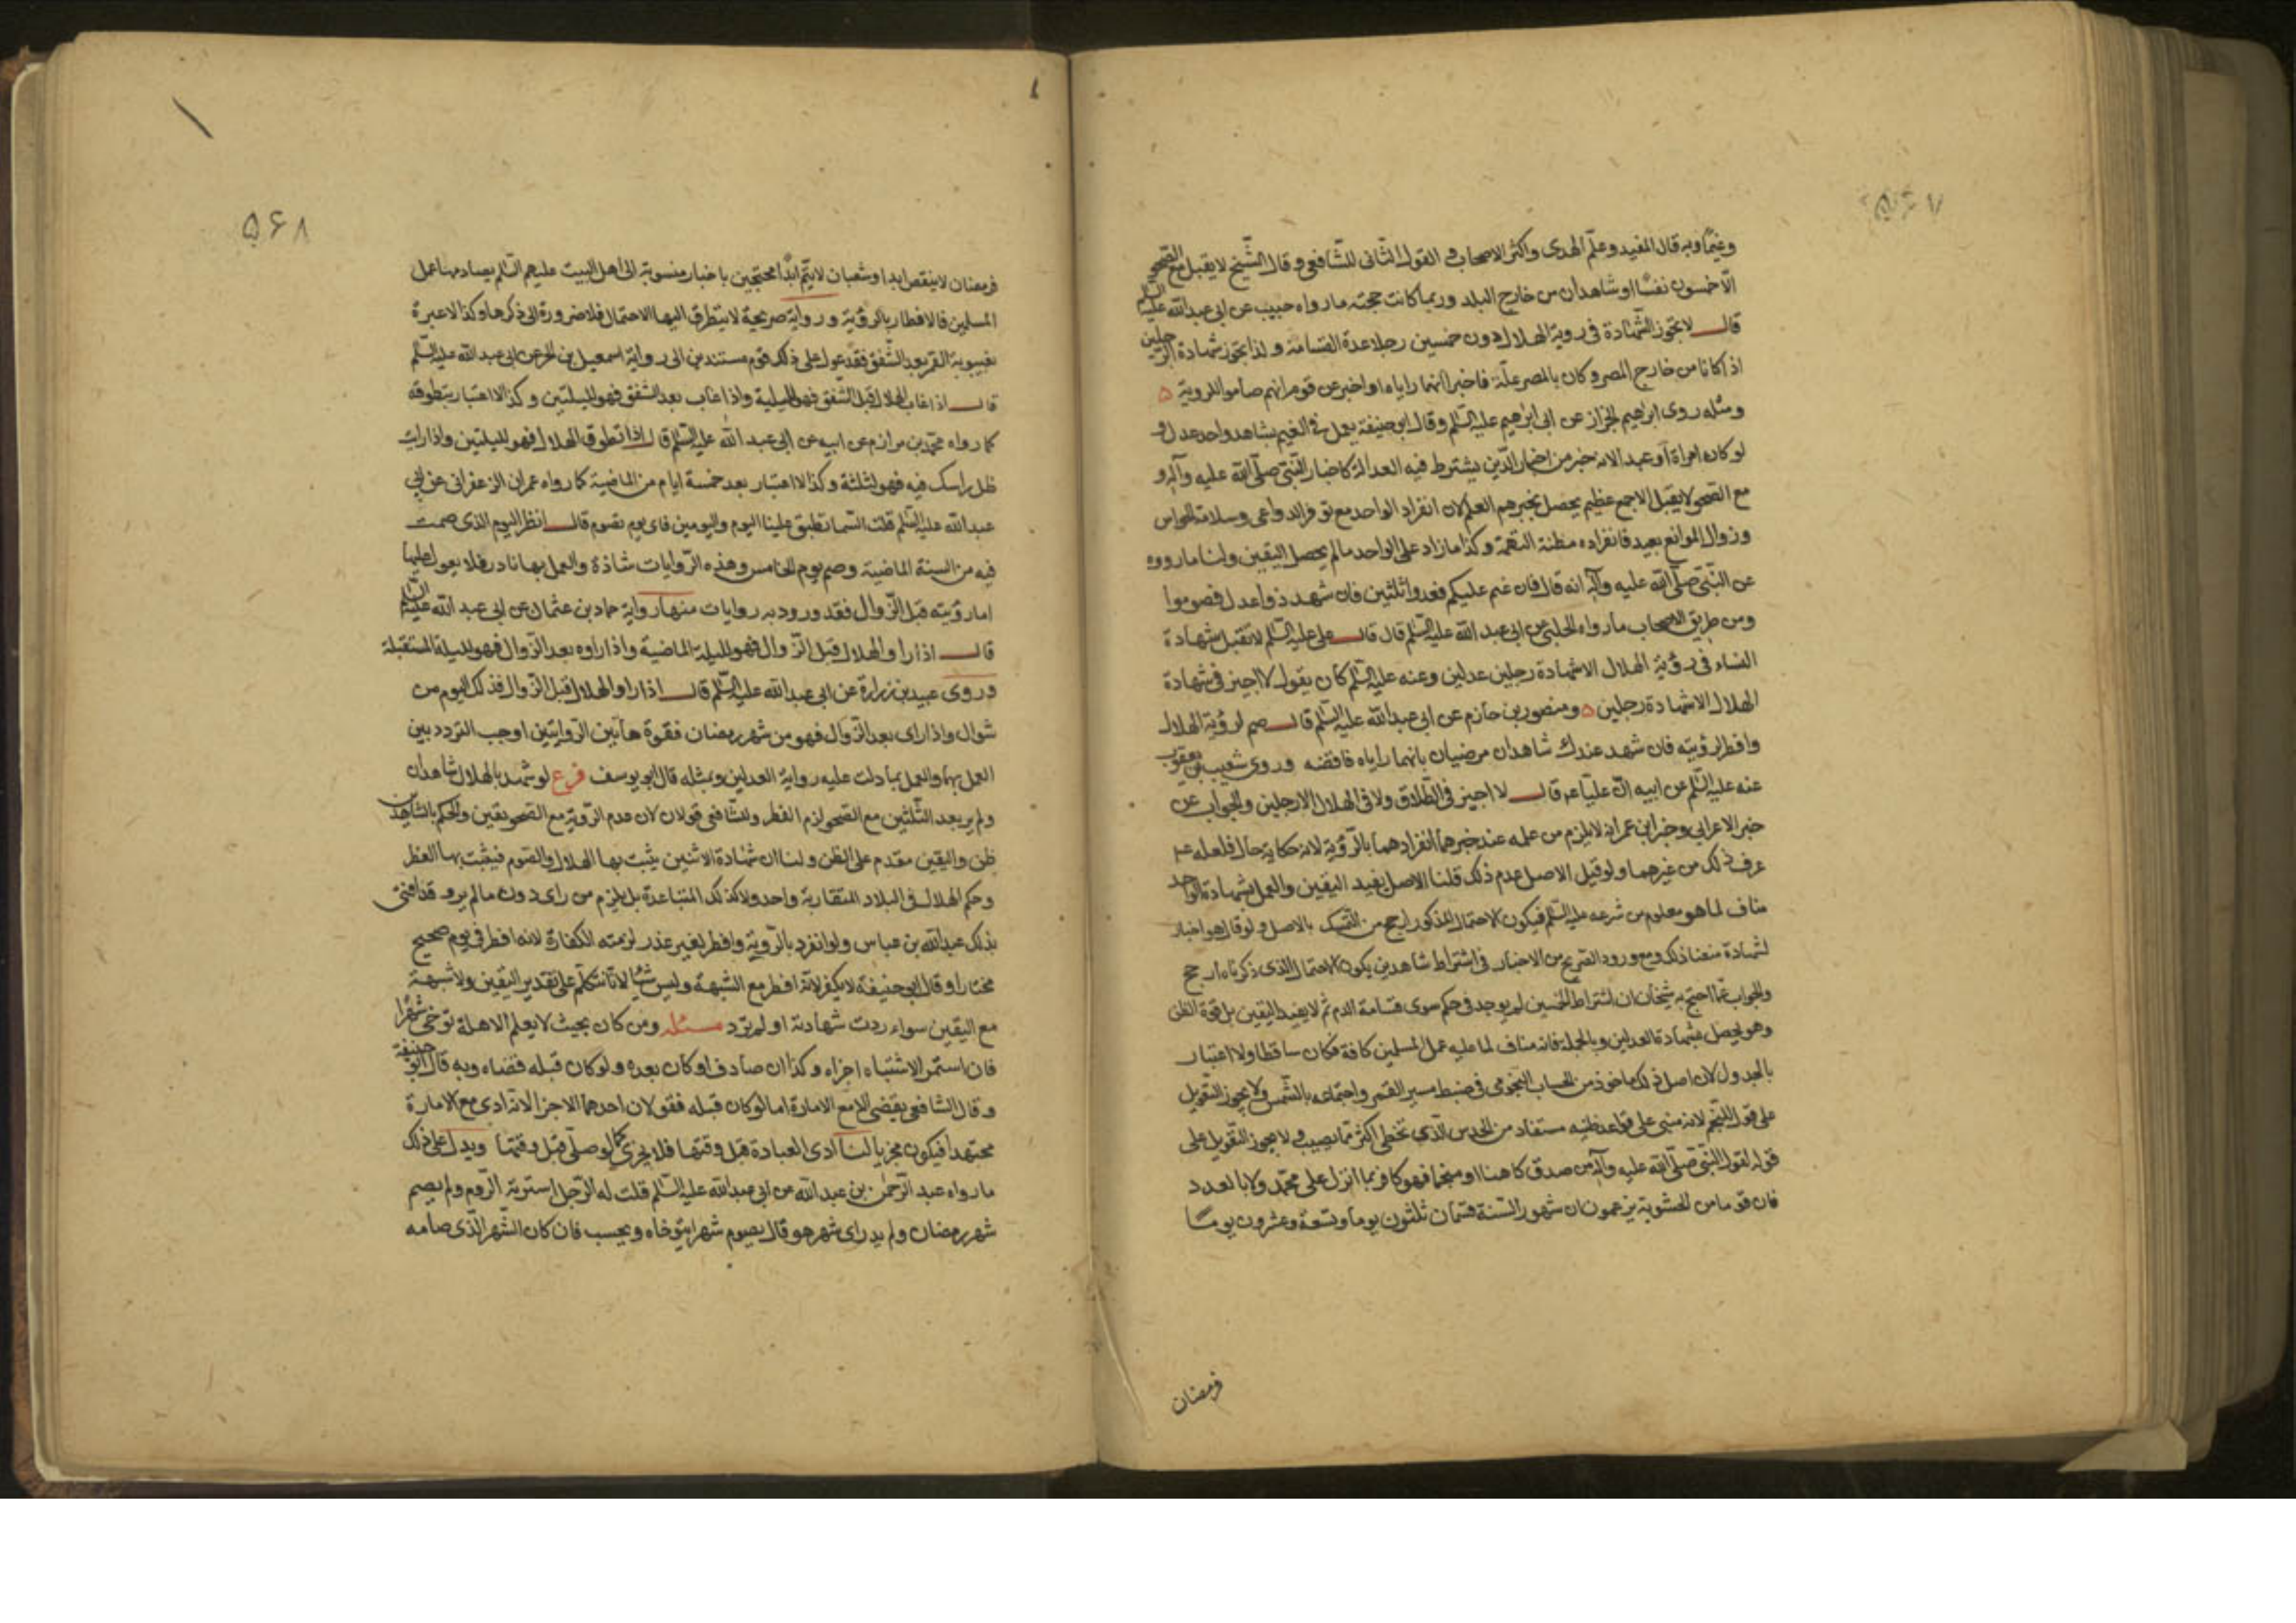 وغیما وبه قال المفید وعلم الهدی واکثر الاصحاب و القول الثانی للشافعی و قال الشیخ لایقبل مع الصحو
الا خمسون نفسا او شاهدان من خارج البلد وربما کانت حجته مارواه حبیب عن ابی عبد الله علیه السلم
قال لا تجوز الشهادة فی رویة الهلال دون خمسین رجلا عدة القسامة و انما تجوز شهادة الرجلین
اذا کانا من خارج المصر و کان بالمصر علة فاخبرا انهما رایاه او اخبر عن قوم انهم صاموا للرویة
ومثله روی ابرهیم الخزاز عن ابی ابرهیم علیه السلم وقال ابو حنیفة یعمل فی الغیم بشاهد واحد عدل و
لو کان امراة او عبد الانه خبر من اخبار الدین یشترط فیه العدالة کاخبار النبی صلی الله علیه وآله و
مع الصحو لا یقبل الا جمع عظیم یحصل بخبرهم العلم لان انفراد الواحد مع توفر الدواعی وسلامة الحواس
وزوال الموانع بعید فانفراده مظنة التهمة وکذا مازاد علی الواحد مالم یحصل الیقین ولنا مارووه
عن النبی صلی الله علیه وآله انه قال فان غم علیکم فعدوا ثلثین فان شهد ذوا عدل فصوموا
ومن طریق الاصحاب مارواه الحلبی عن ابی عبد الله علیه السلم قال قال علی علیه السلم لا تقبل شهادة
النساء فی رؤیة الهلال الا شهادة رجلین عدلین وعنه علیه السلم کان یقول لا اجیز فی شهادة
الهلال الا شهادة رجلین ومنصور بن حازم عن ابی عبد الله علیه السلم قال صم لرؤیة الهلال
وافطر لرؤیته فان شهد عندک شاهدان مرضیان بانهما رایاه فاقضه وروی شعیب بن یعقوب
عنه علیه السلم عن ابیه ان علیا عم قال لا اجیز فی الطلاق ولا فی الهلال الا رجلین والجواب عن
خبر الاعرابی وخبر ابن عمر انه لایلزم من عمله عند خبرهما انفرادهما بالرؤیة لانه حکایة حال فلعله عم
عرف ذلک من غیرهما ولو قیل الاصل عدم ذلک قلنا الاصل یفید الیقین والعمل بشهادة الواحد
مناف لما هو معلوم من شرعه علیه السلم فیکون الاحتمال المذکور ارجح من التمسک بالاصل ولو قال هو اخبار
لشهادة منعنا ذلک ومع ورود الصریح من الاخبار فی اشتراط شاهدین یکون الاحتمال الذی ذکرناه ارجح
والجواب عما احتج به شیخنا ان اشتراط الخمسین لم یوجد فی حکم سوی قسامة الدم ثم لا یفید الیقین بل قوة الظن
وهو یحصل بشهادة العدلین وبالجملة فانه مناف لما علیه عمل المسلمین کافة فکان ساقطا ولا اعتبار
بالجدول لان اصل ذلک ماخوذ من الحساب النجومی فی ضبط مسیر القمر واجتماعه بالشمس ولا یجوز التعویل
علی قول المنجم لانه مبنی علی قواعد ظنیه مستفاد من الحدس الذی تخطی اکثر مما یصیب و لا یجوز التعویل علی
قوله لقول النبی صلی الله علیه وآله من صدق کاهنا او منجما فهو کافر بما انزل علی محمد ولا بالعدد
فان قوما من الحشویة یزعمون ان شهور السنة قسمان ثلثون یوما وتسعة وعشرون یوما
فرمضان
۵۶۸
فرمضان لاینقص ابدا وشعبان لایتم ابدا محتجین باخبار منسوبة الی اهل البیت علیهم السلم یصادمها عمل
المسلمین فالافطار بالرؤیة وروایة صریحة لا یتطرق الیها الاحتمال فلا ضرورة الی ذکرها وکذا لاعبرة
بغیبوبة القمر بعد الشفق فقد عول علی ذلک قوم مستندین الی روایة اسمعیل بن الحر عن ابی عبد الله علیه السلم
قال اذا غاب الهلال قبل الشفق فهو للیلة واذا غاب بعد الشفق فهو للیلتین وکذا لا اعتبار بتطوقه
کما رواه محمد بن مرازم عن ابیه عن ابی عبد الله علیه السلم قال اذا تطوق الهلال فهو للیلتین واذا رایت
ظل راسک فیه فهو لثلثة وکذا لا اعتبار بعد خمسة ایام من الماضیة کما رواه عمران الزعفرانی عن ابی
عبد الله علیه السلم قلت السما تطبق علینا الیوم والیومین فای یوم نصوم قال انظر الیوم الذی صمت
فیه من السنة الماضیة وصم یوم الخامس وهذه الروایات شاذة والعمل بها نادر فلا یعول علیها
اما رؤیته قبل الزوال فقد ورود به روایات منها روایة حماد بن عثمان عن ابی عبد الله علیه السلم
قال اذا راوا الهلال قبل الزوال فهو للیلة الماضیة واذا راوه بعد الزوال فهو للیلة المستقبلة
وروی عبید بن زرارة عن ابی عبد الله علیه السلم قال اذا راوا الهلال قبل الزوال فذلک الیوم من
شوال واذا رای بعد الزوال فهو من شهر رمضان فقوة هاتین الروایتین اوجب التردد بین
العمل بهما والعمل بما دلت علیه روایة العدلین وبمثله قال ابو یوسف فرع لو شهد بالهلال شاهدان
ولم یر بعد الثلثین مع الصحو لزم الفطر وللشافعی قولان لان عدم الرؤیة مع الصحو یقین والحکم بالشاهدین
ظن والیقین مقدم علی الظن ولنا ان شهادة الاثنین یثبت بها الهلال والصوم فیثبت بها الفطر
وحکم الهلال فی البلاد المتقاربة واحد ولا کذلک المتباعدة بل یلزم من رای دون مالم یر وقد افتی
بذلک عبد الله بن عباس ولو انفرد بالرؤیة وافطر لغیر عذر لزمته الکفارة لانه افطر فی یوم صحیح
مختارا وقال ابو حنیفة لا یکفر لانه افطر مع الشبهة ولیس شیا لانا نتکلم علی تقدیر الیقین ولا شبهة
مع الیقین سواء ردت شهادته او لم ترد مسئله ومن کان بحیث لا یعلم الاهلة توخی شهرا
فان استمر الاشتباه اجزاه وکذا ان صادف او کان بعده ولو کان قبله قضاه وبه قال ابو حنیفة
وقال الشافعی یقضی الا مع الامارة اما لو کان قبله فقولان احدهما الاجزا لانه ادی مع الامارة
مجتهدا فیکون مجزیا لنا ادی العبادة قبل وقتها فلا یجزی کما لو صلی قبل وقتها ویدل علی ذلک
مارواه عبد الرحمن بن عبد الله عن ابی عبد الله علیه السلم قلت له الرجل استریه الروم ولم یصم
شهر رمضان ولم یدر ای شهر هو قال یصوم شهرا یتوخاه ویحسب فان کان الشهر الذی صامه